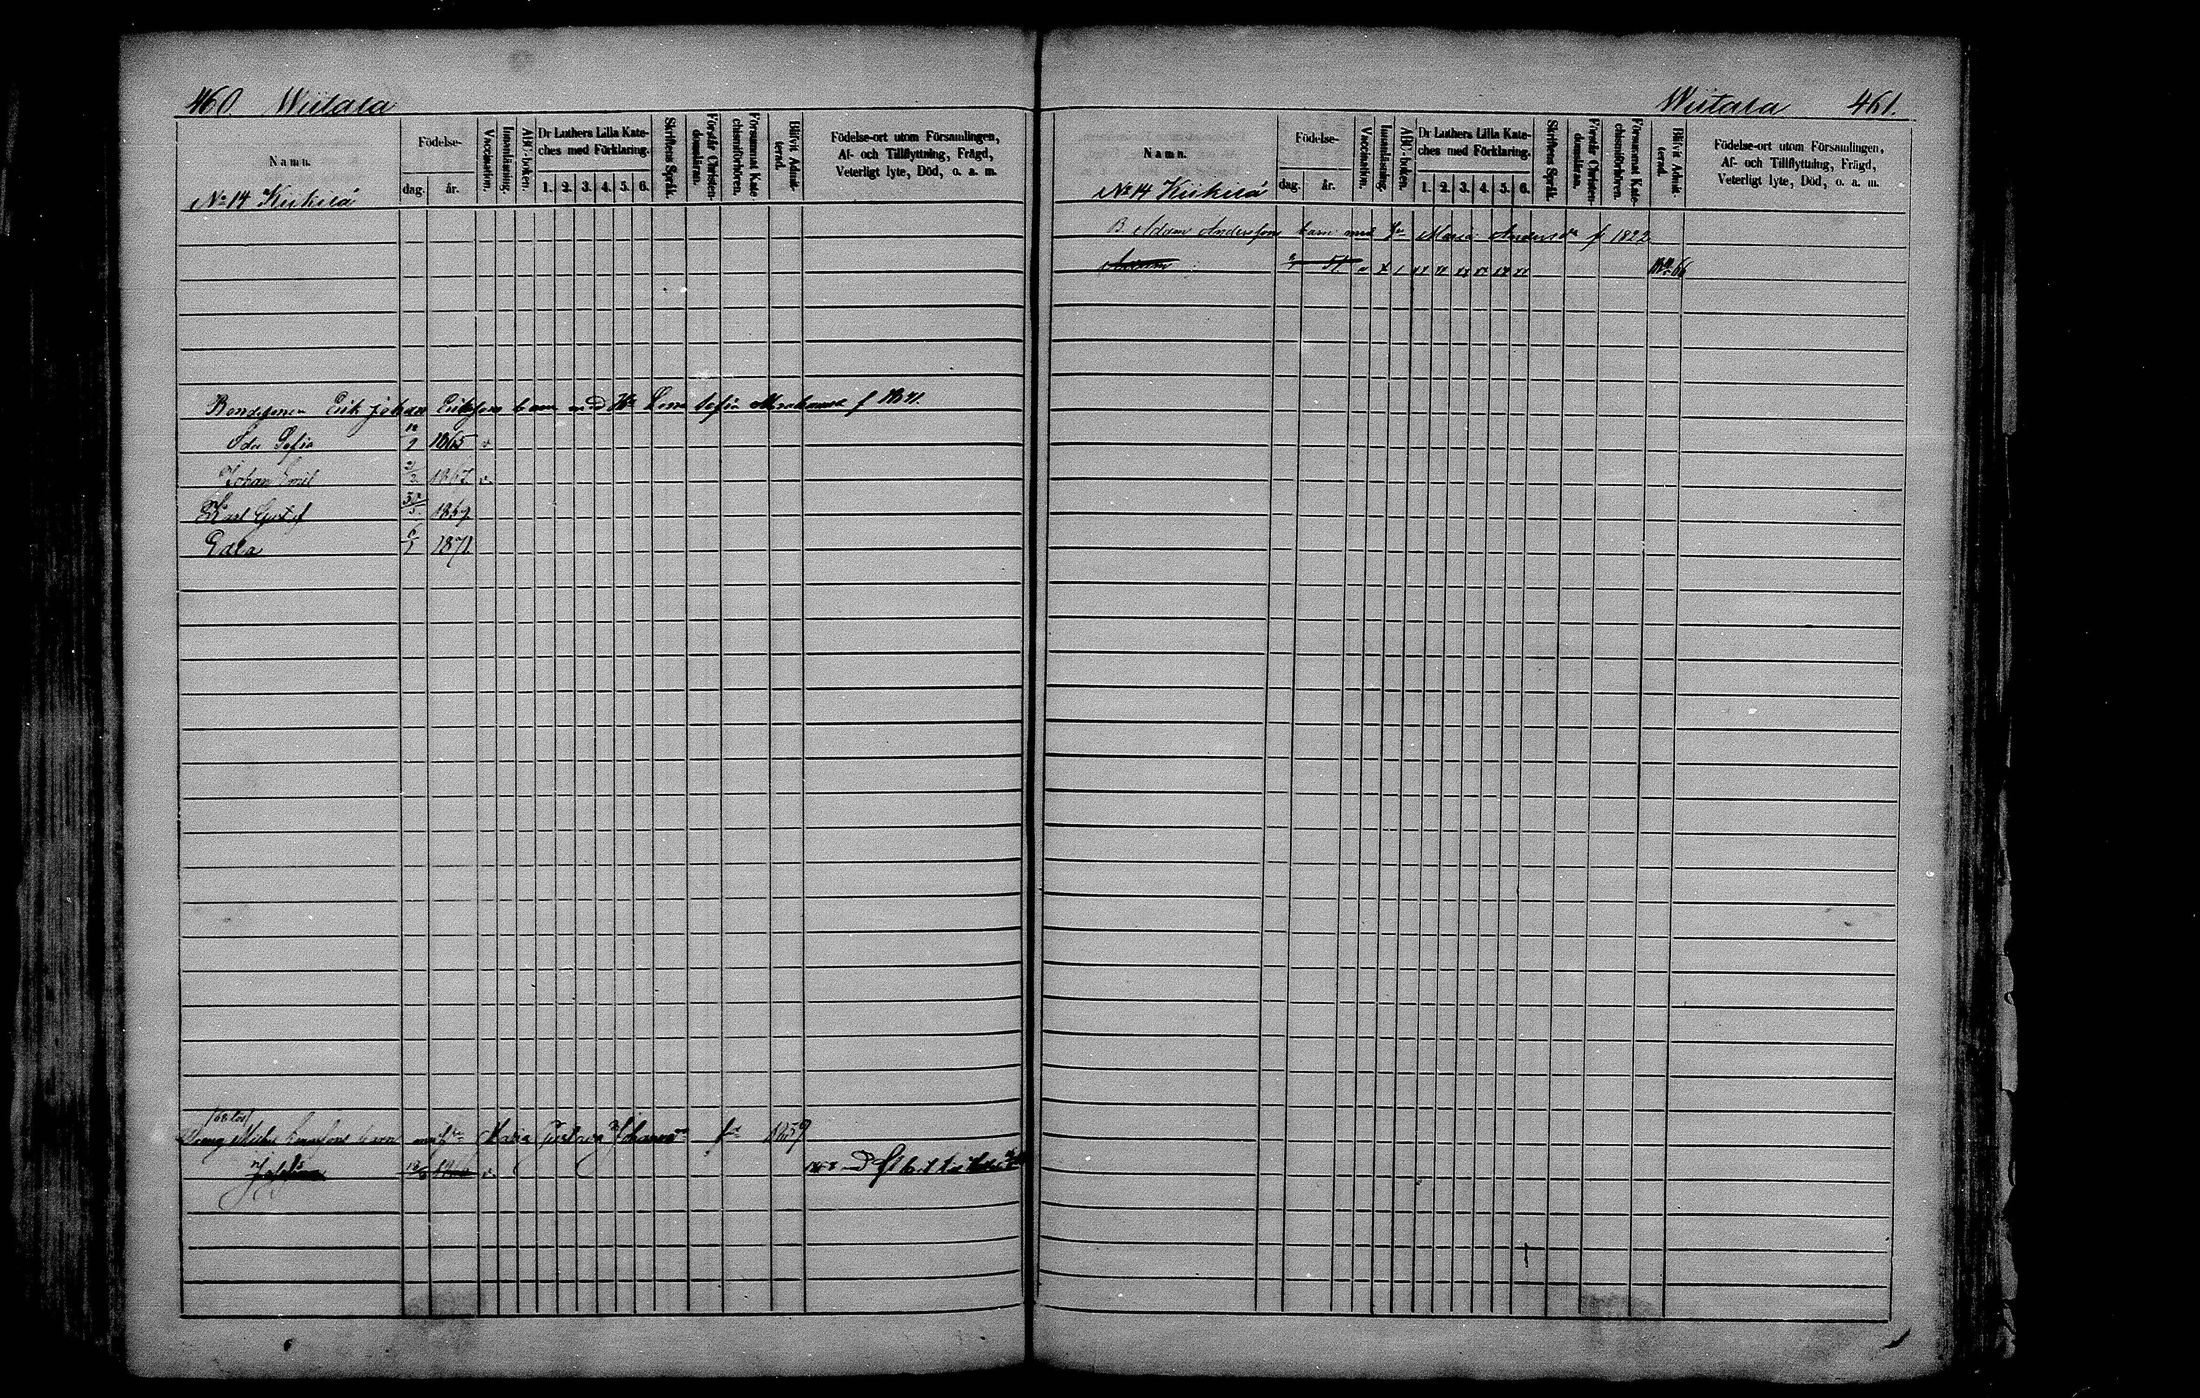 460. Wiitala
Namn.
Födelse-
dag.
år.
Vaccination.
Innanläsning.
ABC-boken.
Dr Luthers Lilla Kate-
ches med Förklaring.
1. 2. 3. 4. 5. 6.
Skriftens Språk.
Förstår Christen-
domsläran.
Försummat Kate
chismiförhören.
Blifvit Admit-
terad.
Födelse-ort utom Församlingen,
Af- och Tillflyttning, Frägd,
Veterligt lyte, Död, o. a. m.
No 14 Kiikilä
Bondesonen Erik Johan Erikssons barn med Hu Lena Sofia f 1841.
Ida Sofia 1865 v
Johan Emil 2/2 1867 v.
Karl Gustaf 31/5 1869
Edla 6/1 1871
Maria Gustava Johansdr fd 1859
Wiitala 461.
Namn.
Födelse-
dag.
år.
Vaccination.
Innanläsning.
ABC-boken.
Dr Luthers Lilla Kate-
ches med Förklaring.
1. 2. 3. 4. 5. 6.
Skriftens Språk.
Förstår Christen-
domsläran.
Försummat Kate-
chismiförhören.
Blifvit Admit-
terad.
Födelse-ort utom Församlingen,
Af- och Tillflyttning, Frägd,
Veterligt lyte, Död, o. a. m.
No 14 Kiikilä
B. Adam Anderssons barn med Hu Maria Andersdr f 1822
51